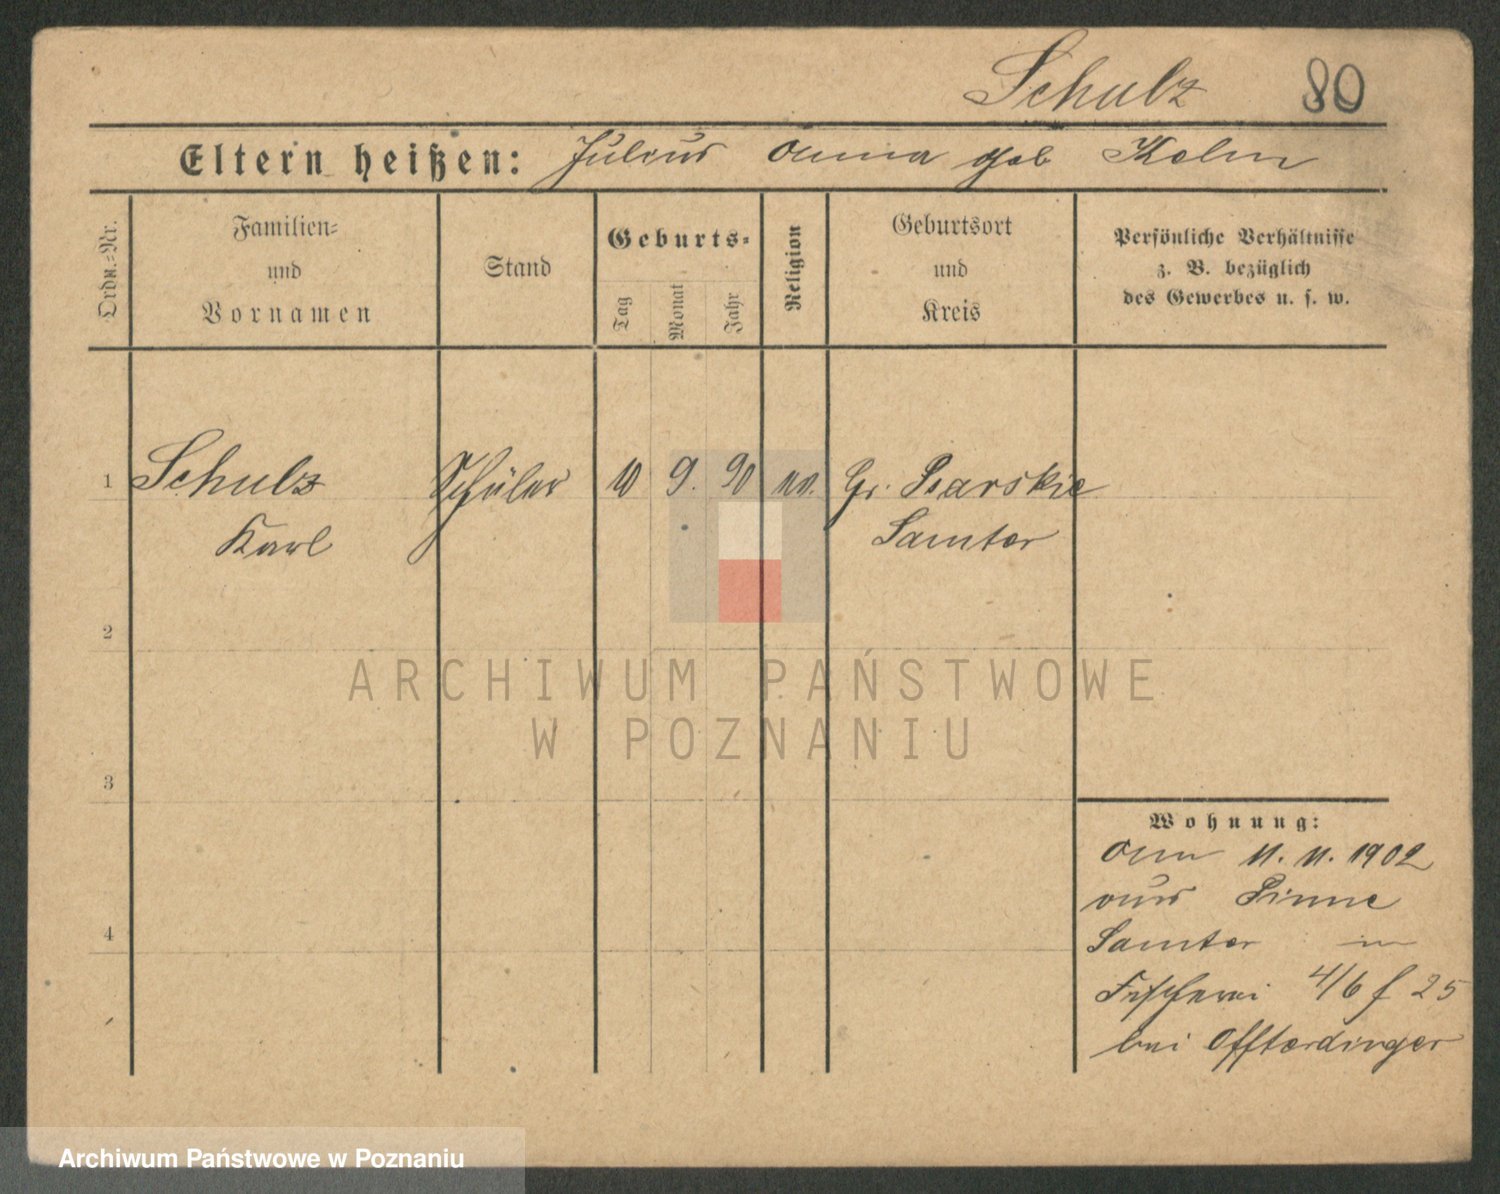 Schulz 80
Eltern heißen: Julius Anna geb Kelm
Ordn.=Nr.
Familien=
und
Vornamen
Stand
Geburts=
Tag
Monat
Jahr
Religion
Geburtsort
und
Kreis
Persönliche Verhältnisse
z. B. bezüglich
des Gewerbes u. s. w.
1 Schulz Schüler 10 9. 90 ev. Gr. Psarskie
Karl Samter
2
ARCHIWUM PAŃSTWOWE
W POZNANIU
3
Wohnung:
am 11. 11. 1902
aus Pinne
4
Samter in
Fischerei 4/6 f 25
bei Offterdinger
Archiwum Państwowe w Poznaniu